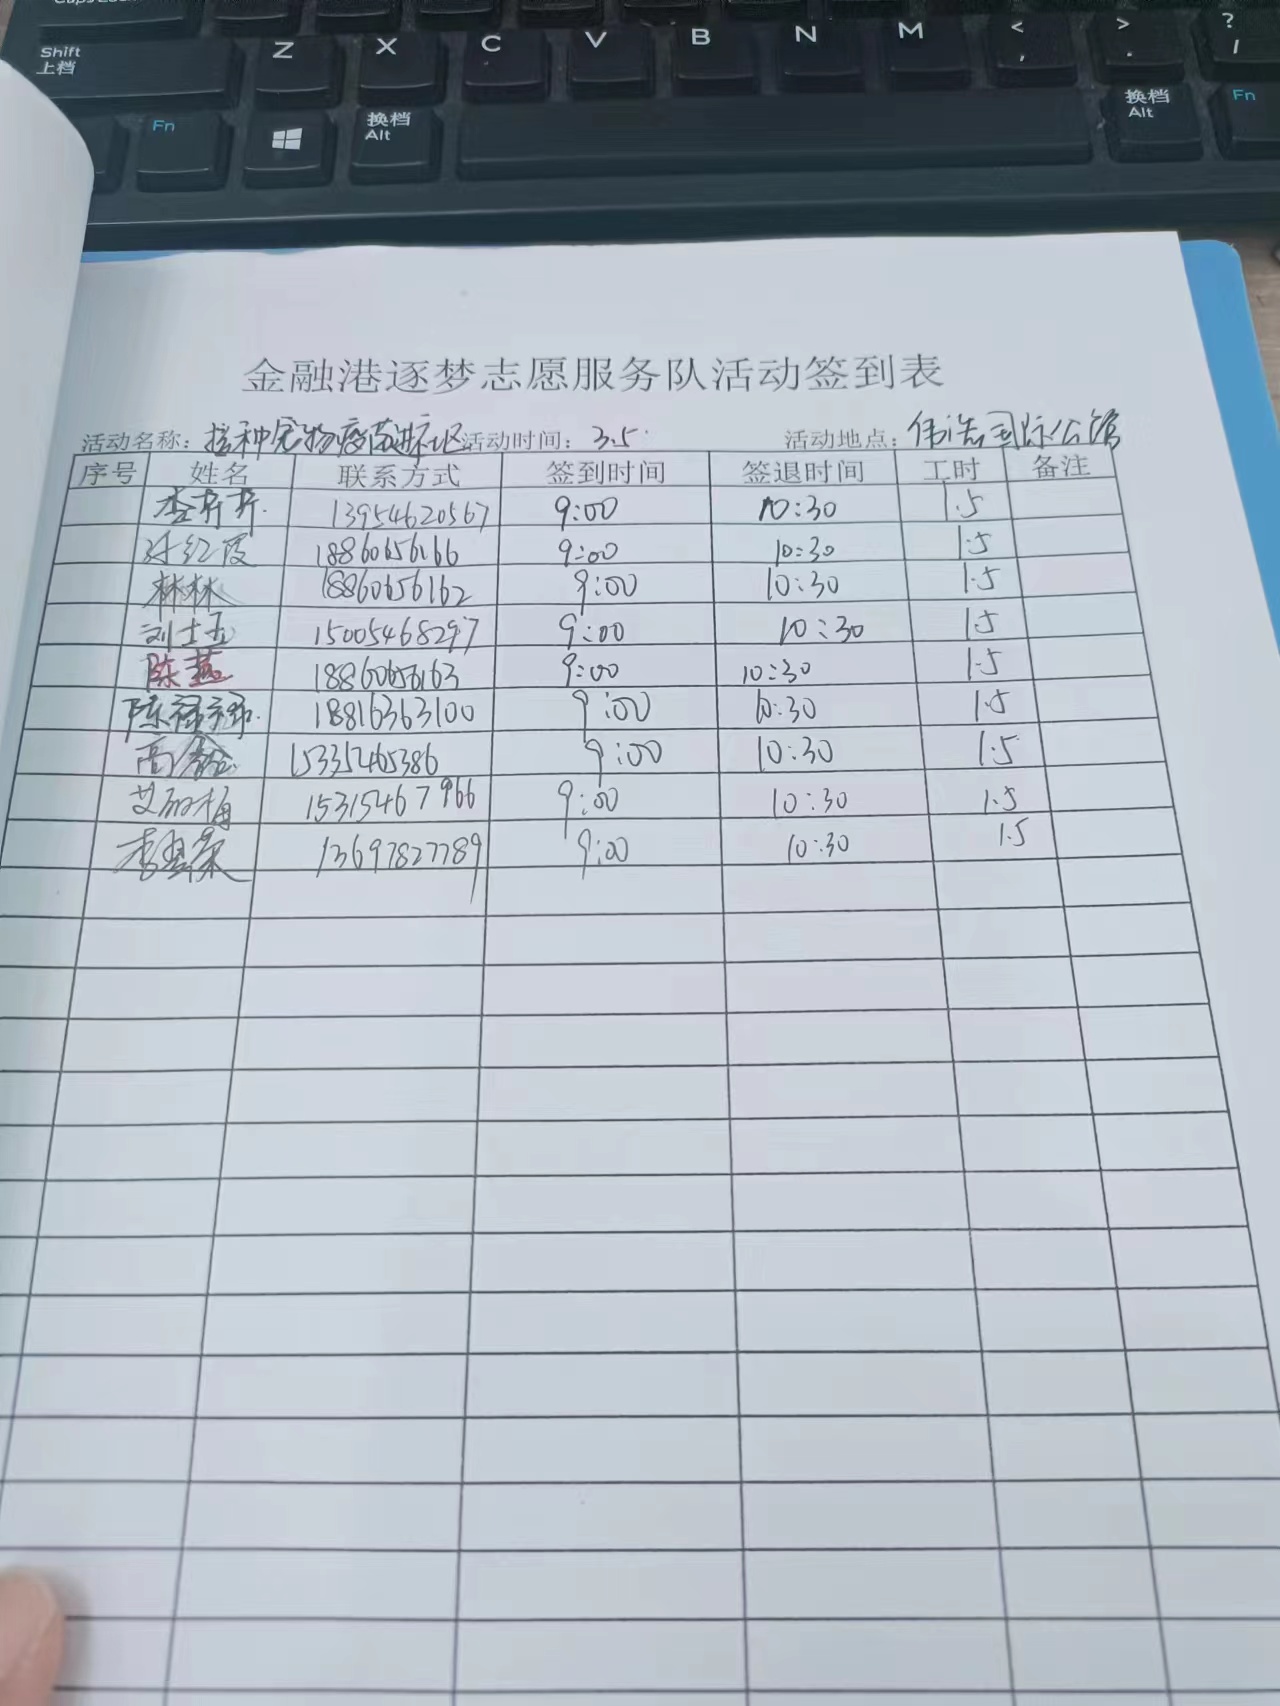 Shift Z X C V B N M < , > . ? /
上档
Fn 换档 Alt 换档 Alt Fn
金融港逐梦志愿服务队活动签到表
活动名称：接种宠物疫苗进社区 活动时间：3.5. 活动地点：伟浩国际公馆
序号 姓名 联系方式 签到时间 签退时间 工时 备注
13954620567 9:00 10:30 1.5
孙红霞 18860656166 9:00 10:30 1.5
林林 18860656162 9:00 10:30 1.5
刘士玉 15005468297 9:00 10:30 1.5
陈燕 18860656163 9:00 10:30 1.5
陈禄禄 18816363100 9:00 10:30 1.5
高 15335465386 9:00 10:30 1.5
艾丽梅 15315467966 9:00 10:30 1.5
李 13697827789 9:00 10:30 1.5